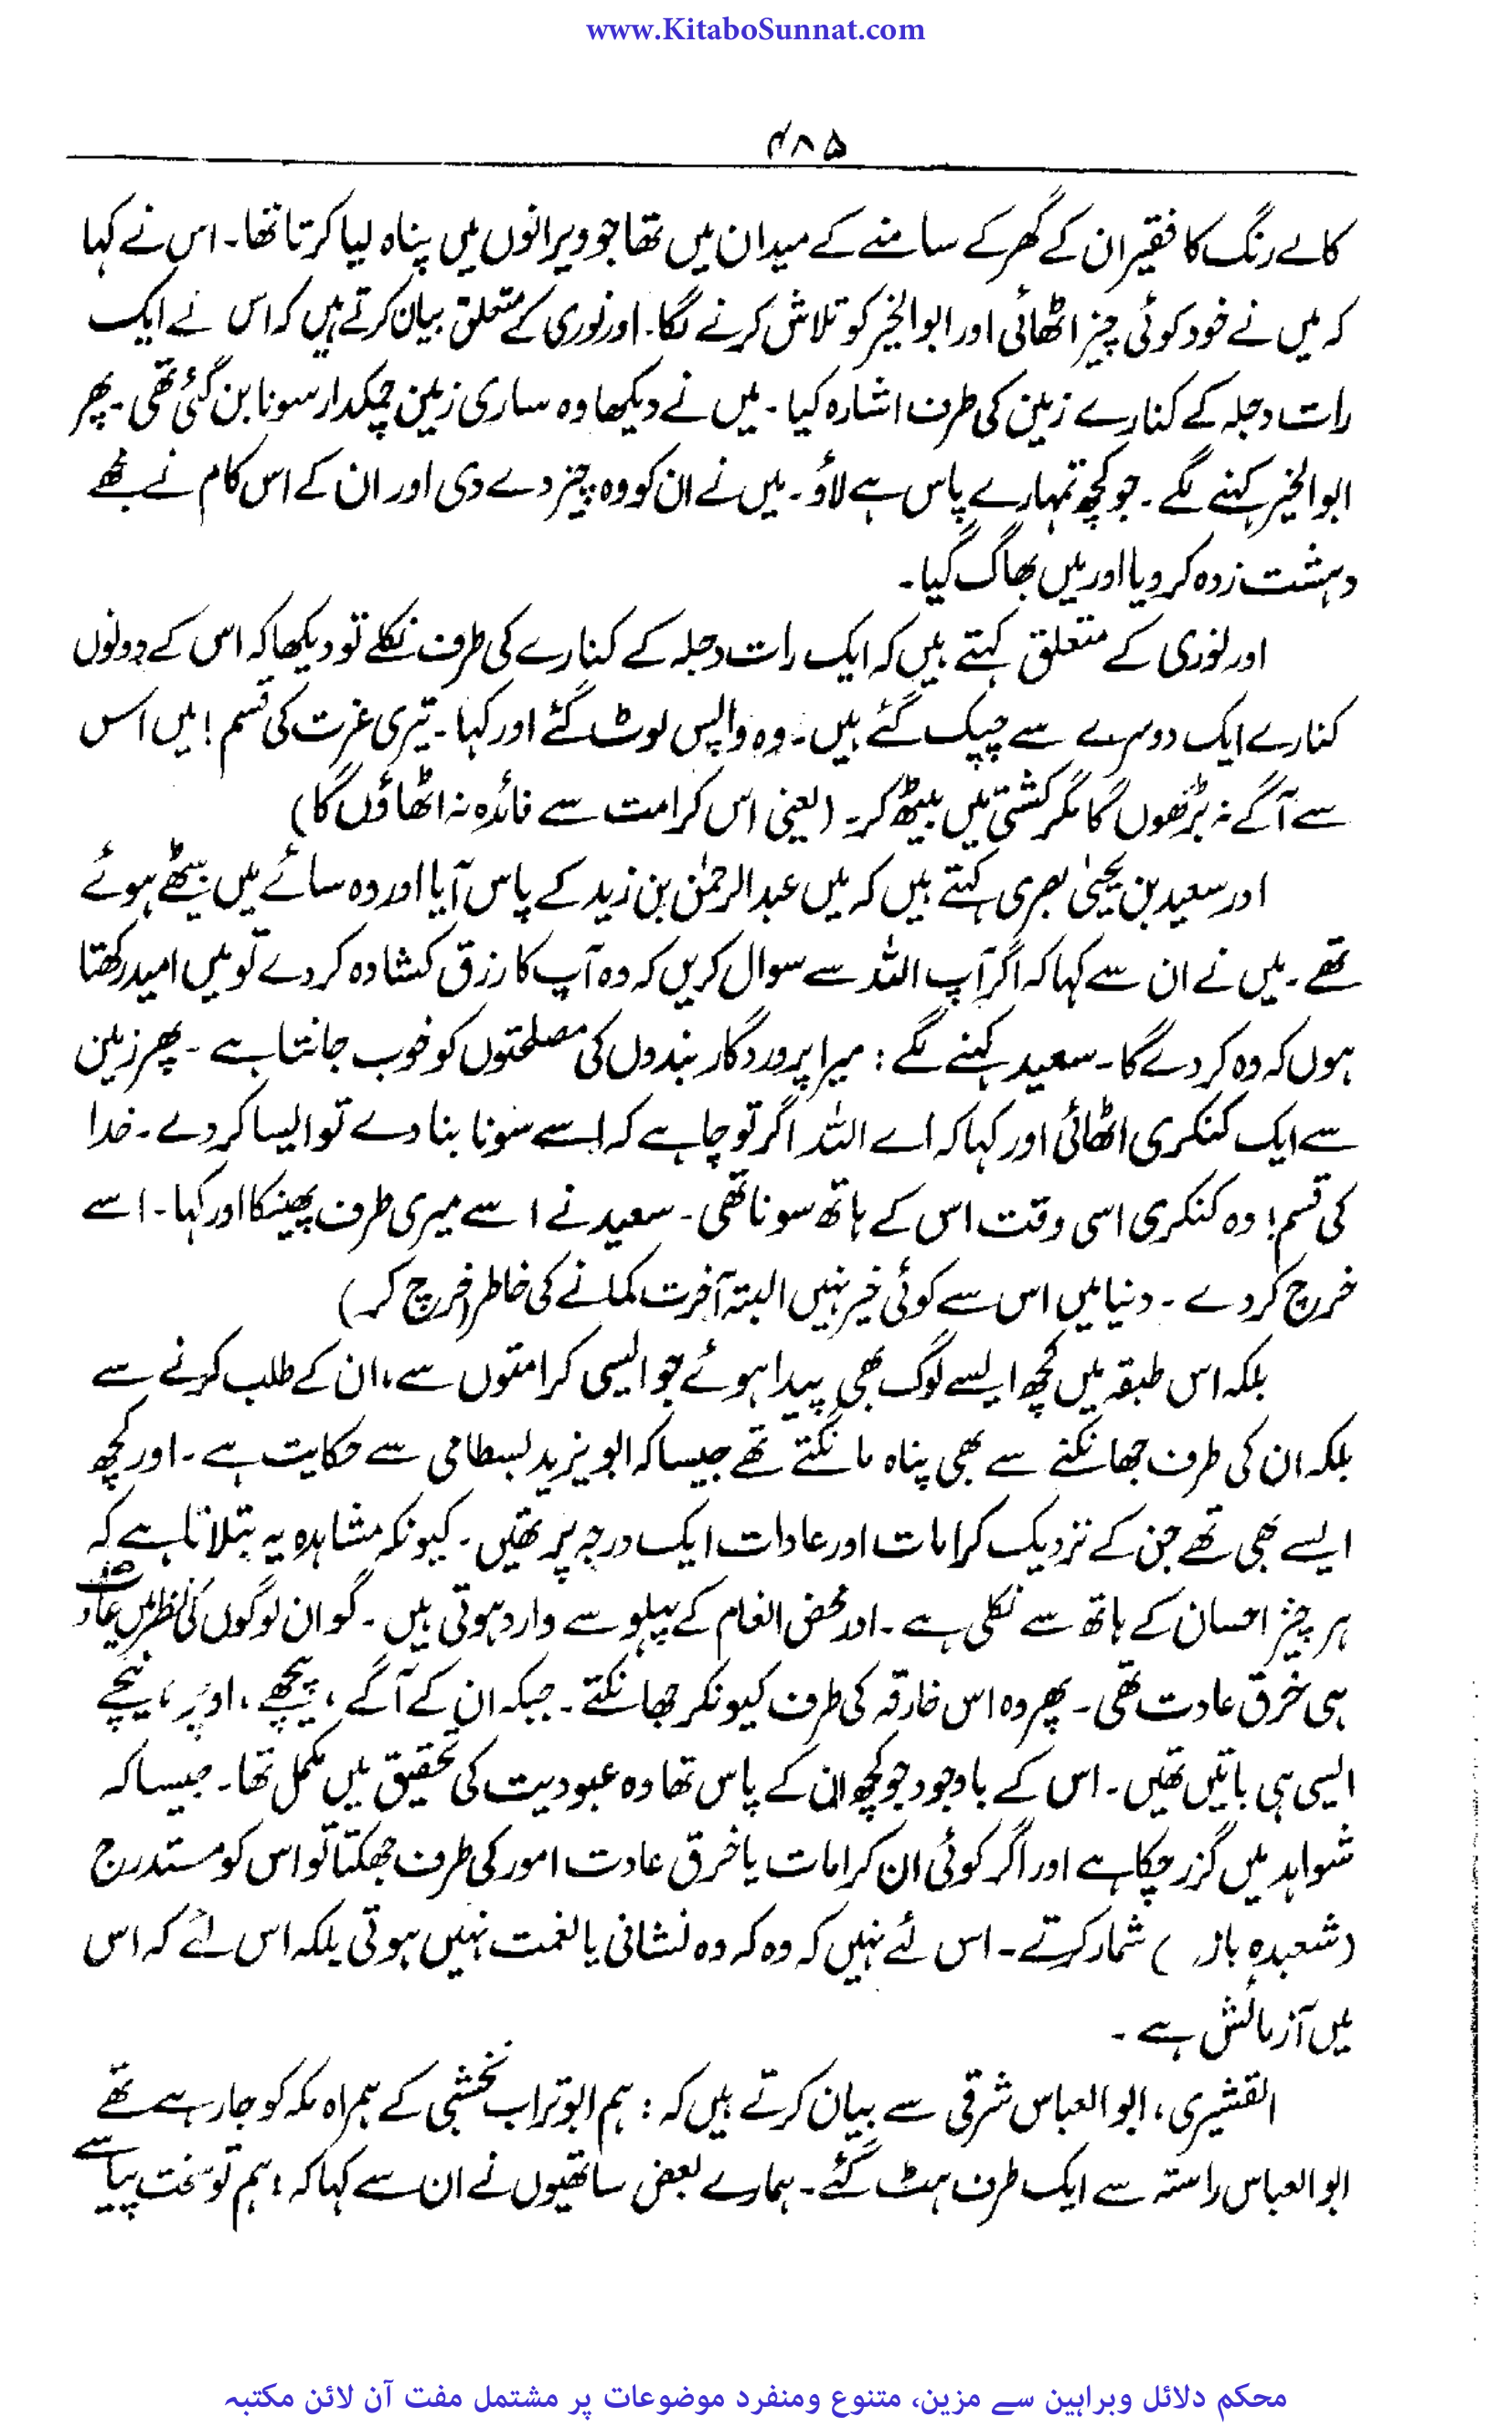 www.KitaboSunnat.com
۴۸۵
کالے رنگ کا فقیر ان کے گھر کے سامنے کے میدان میں تھا جو ویرانوں میں پناہ لیا کرتا تھا۔ اس نے کہا
کہ میں نے خود کوئی چیز اٹھائی اور ابوالخیر کو تلاش کرنے لگا۔ اور نوری کے متعلق بیان کرتے ہیں کہ اس نے ایک
رات دجلہ کے کنارے زمین کی طرف اشارہ کیا۔ میں نے دیکھا وہ ساری زمین چمکدار سونا بن گئی تھی۔ پھر
ابوالخیر کہنے لگے۔ جو کچھ تمہارے پاس ہے لاؤ۔ میں نے ان کو وہ چیز دے دی اور ان کے اس کام نے مجھے
دہشت زدہ کر دیا اور میں بھاگ گیا۔
اور نوری کے متعلق کہتے ہیں کہ ایک رات دجلہ کے کنارے کی طرف نکلے تو دیکھا کہ اس کے دونوں
کنارے ایک دوسرے سے چپک گئے ہیں۔ وہ واپس لوٹ گئے اور کہا۔ تیری عزت کی قسم! میں اس
سے آگے نہ بڑھوں گا مگر کشتی میں بیٹھ کر۔ (یعنی اس کرامت سے فائدہ نہ اٹھاؤں گا)
اور سعید بن یحییٰ بصری کہتے ہیں کہ میں عبدالرحمٰن بن زید کے پاس آیا اور وہ سائے میں بیٹھے ہوئے
تھے۔ میں نے ان سے کہا کہ اگر آپ اللہ سے سوال کریں کہ وہ آپ کا رزق کشادہ کر دے تو میں امید رکھتا
ہوں کہ وہ کر دے گا۔ سعید کہنے لگے : میرا پروردگار بندوں کی مصلحتوں کو خوب جانتا ہے۔ پھر زمین
سے ایک کنکری اٹھائی اور کہا کہ اے اللہ اگر تو چاہے کہ اسے سونا بنا دے تو ایسا کر دے۔ خدا
کی قسم! وہ کنکری اسی وقت اس کے ہاتھ سونا تھی۔ سعید نے اسے میری طرف پھینکا اور کہا۔ اسے
خرچ کر دے۔ دنیا میں اس سے کوئی خیر نہیں البتہ آخرت کمانے کی خاطر (خرچ کر)
بلکہ اس طبقہ میں کچھ ایسے لوگ بھی پیدا ہوئے جو ایسی کرامتوں سے، ان کے طلب کرنے سے
بلکہ ان کی طرف جھانکنے سے بھی پناہ مانگتے تھے جیسا کہ ابو یزید بسطامی سے حکایت ہے۔ اور کچھ
ایسے بھی تھے جن کے نزدیک کرامات اور عادات ایک درجہ پر تھیں۔ کیونکہ مشاہدہ یہ بتلاتا ہے کہ
ہر چیز احسان کے ہاتھ سے نکلی ہے۔ اور محض انعام کے پہلو سے وارد ہوتی ہیں۔ گو ان لوگوں کی نظر میں عادت
ہی خرق عادت تھی۔ پھر وہ اس خارقہ کی طرف کیونکر جھانکتے۔ جبکہ ان کے آگے، پیچھے، اوپر، نیچے
ایسی ہی باتیں تھیں۔ اس کے باوجود جو کچھ ان کے پاس تھا وہ عبودیت کی تحقیق میں مکمل تھا۔ جیسا کہ
شواہد میں گزر چکا ہے اور اگر کوئی ان کرامات یا خرق عادت امور کی طرف جھکتا تو اس کو مستدرج
(شعبدہ باز) شمار کرتے۔ اس لئے نہیں کہ وہ کہ وہ نشانی یا نعمت نہیں ہوتی بلکہ اس لئے کہ اس
میں آزمائش ہے۔
القشیری، ابوالعباس شرقی سے بیان کرتے ہیں کہ : ہم ابو تراب نخشبی کے ہمراہ مکہ کو جا رہے تھے
ابوالعباس راستہ سے ایک طرف ہٹ گئے۔ ہمارے بعض ساتھیوں نے ان سے کہا کہ : ہم تو سخت پیاسے
محکم دلائل وبراہین سے مزین، متنوع ومنفرد موضوعات پر مشتمل مفت آن لائن مکتبہ